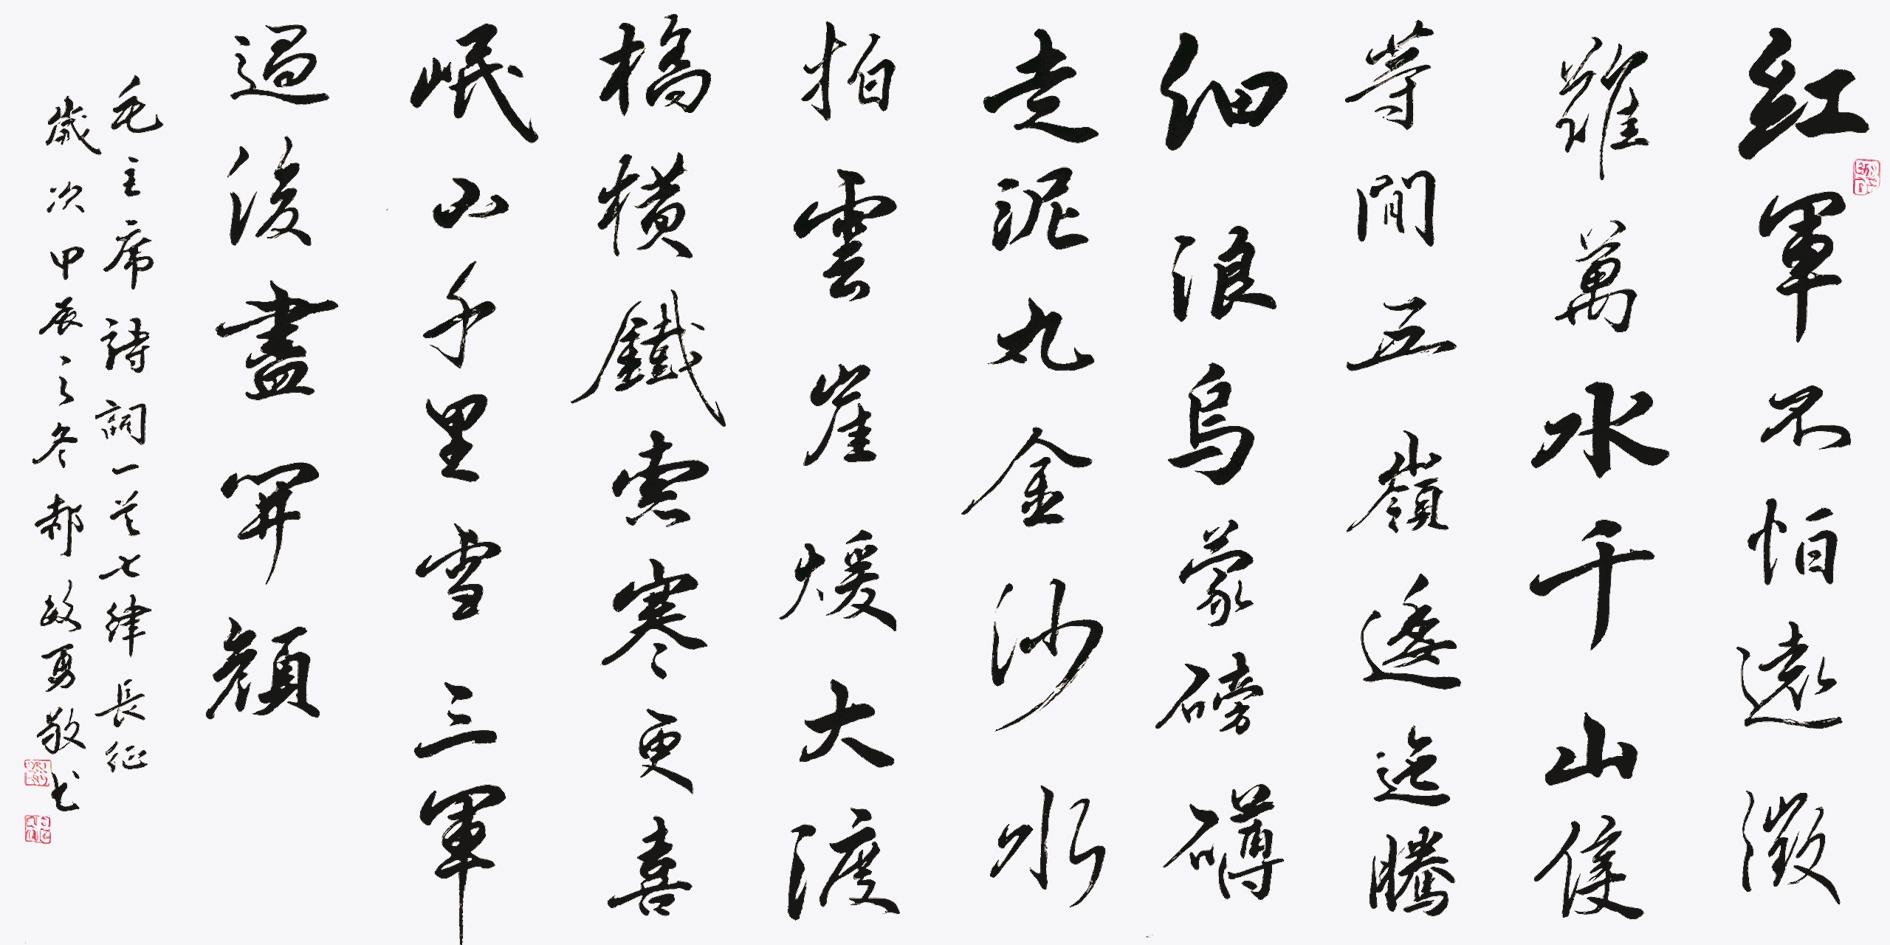 紅軍不怕遠徵
難萬水千山隻
等閒五嶺逶迤騰
細浪烏蒙磅礴
走泥丸金沙水
拍雲崖煖大渡
橋橫鐵索寒更喜
岷山千里雪三軍
過後盡開顏
毛主席詩詞一首七律長征
歲次甲辰之冬郝勇敬书